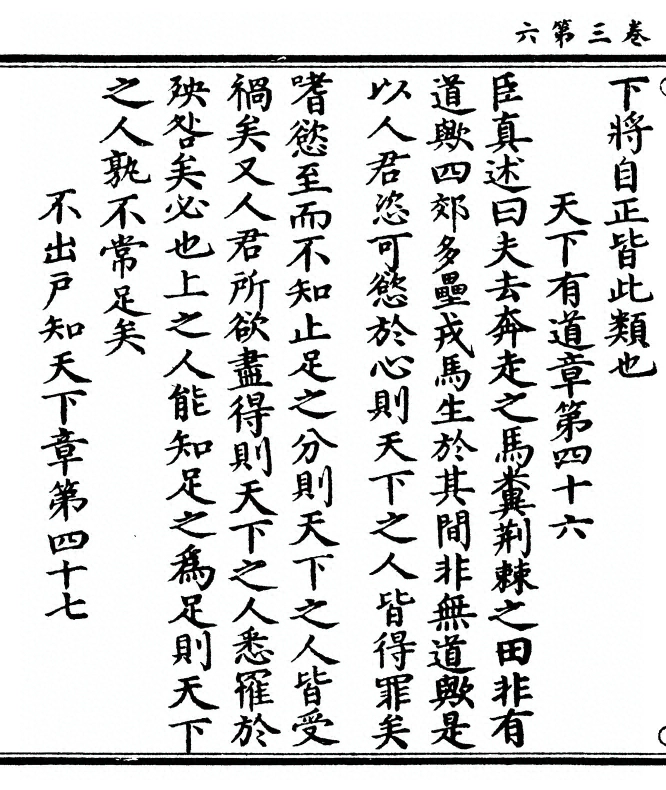 卷三第六
下將自正皆此類也
天下有道章第四十六
臣真述曰夫去奔走之馬糞荆棘之田非有
道歟四郊多壘戎馬生於其間非無道歟是
以人君恣可慾於心則天下之人皆得罪矣
嗜慾至而不知止足之分則天下之人皆受
禍矣又人君所欲盡得則天下之人悉罹於
殃咎矣必也上之人能知足之爲足則天下
之人孰不常足矣
不出戶知天下章第四十七